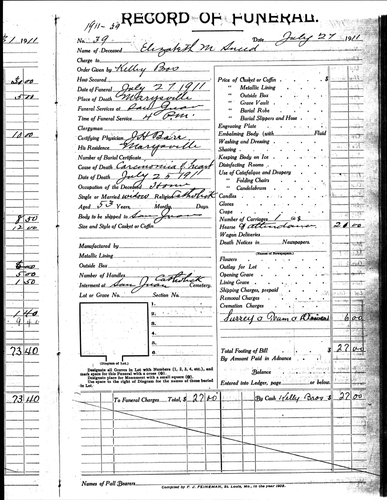 1911-39
RECORD OF FUNERAL.
No. 39 Date July 27 1911
Name of Deceased Elizabeth M Sneed
Charge to
Order Given by Kelley Bros
How Secured
Date of Funeral July 27 1911
Place of Death Marysville
Funeral Services at San Juan
Time of Funeral Service 4 P.M.
Clergyman
Certifying Physician J H Barr
His Residence Marysville
Number of Burial Certificate
Cause of Death Carcinoma of
Date of Death July 25 1911
Occupation of the Deceased Home
Single or Married widow Religion Catholick
Aged 53 Years Months Days
Body to be shipped to San Juan
Size and Style of Casket or Coffin
Manufactured by
Metallic Lining
Outside Box
Number of Handles
Interment at San Juan Catholick Cemetery.
Lot or Grave No. Section No.
1.
2.
3.
4.
5.
6.
(Diagram of Lot.)
Designate all Graves in Lot with Numbers (1, 2, 3, 4, etc.), and
mark space for this Funeral with a cross (✕).
Designate place for Monument with a small square (□).
Use space to the right of Diagram for the names of those buried
in Lot.
Price of Casket or Coffin $
" Metallic Lining
" Outside Box
" Grave Vault
" Burial Robe
" Burial Slippers and Hose
Engraving Plate
Embalming Body with Fluid
Washing and Dressing
Shaving
Keeping Body on Ice
Disinfecting Rooms
Use of Catafalque and Drapery
" Folding Chairs
" Candelabrum
Candles
Gloves
Crape
Number of Carriages 1 @ $
Hearse & attendance 21 00
Wagon Deliveries
Death Notices in Newspapers.
(Names of Newspapers.)
Flowers
Outlay for Lot
Opening Grave
Lining Grave
Shipping Charges, prepaid
Removal Charges
Cremation Charges
Surrey & Team & Driver 6 00
Total Footing of Bill $ 27 00
By Amount Paid in Advance
Balance
Entered into Ledger, page or below.
To Funeral Charges Total, $ 27 00 By Cash Kelley Bros 27 00
Names of Pall Bearers
Compiled by F. J. FEINEMAN, St. Louis, Mo., in the year 1902.
1911
10 00
8 50
12 00
5 00
1 50
1 40
73 40
73 40